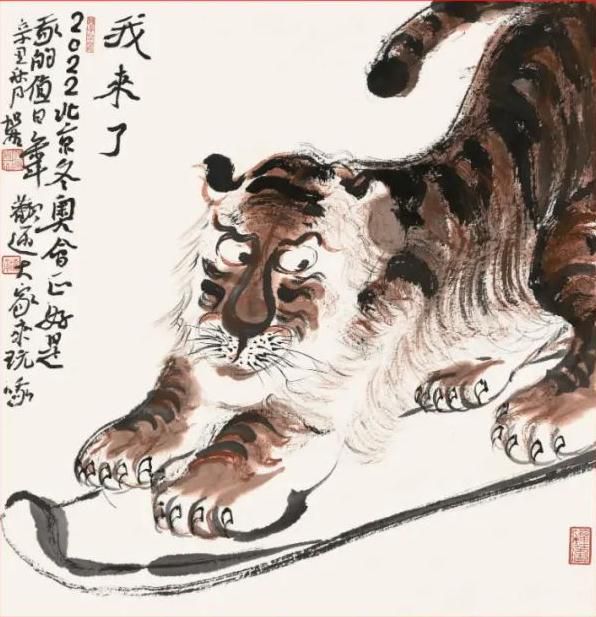 我来了
2022北京冬奥會正好是
我的值日年 歡迎大家来玩哦
辛丑